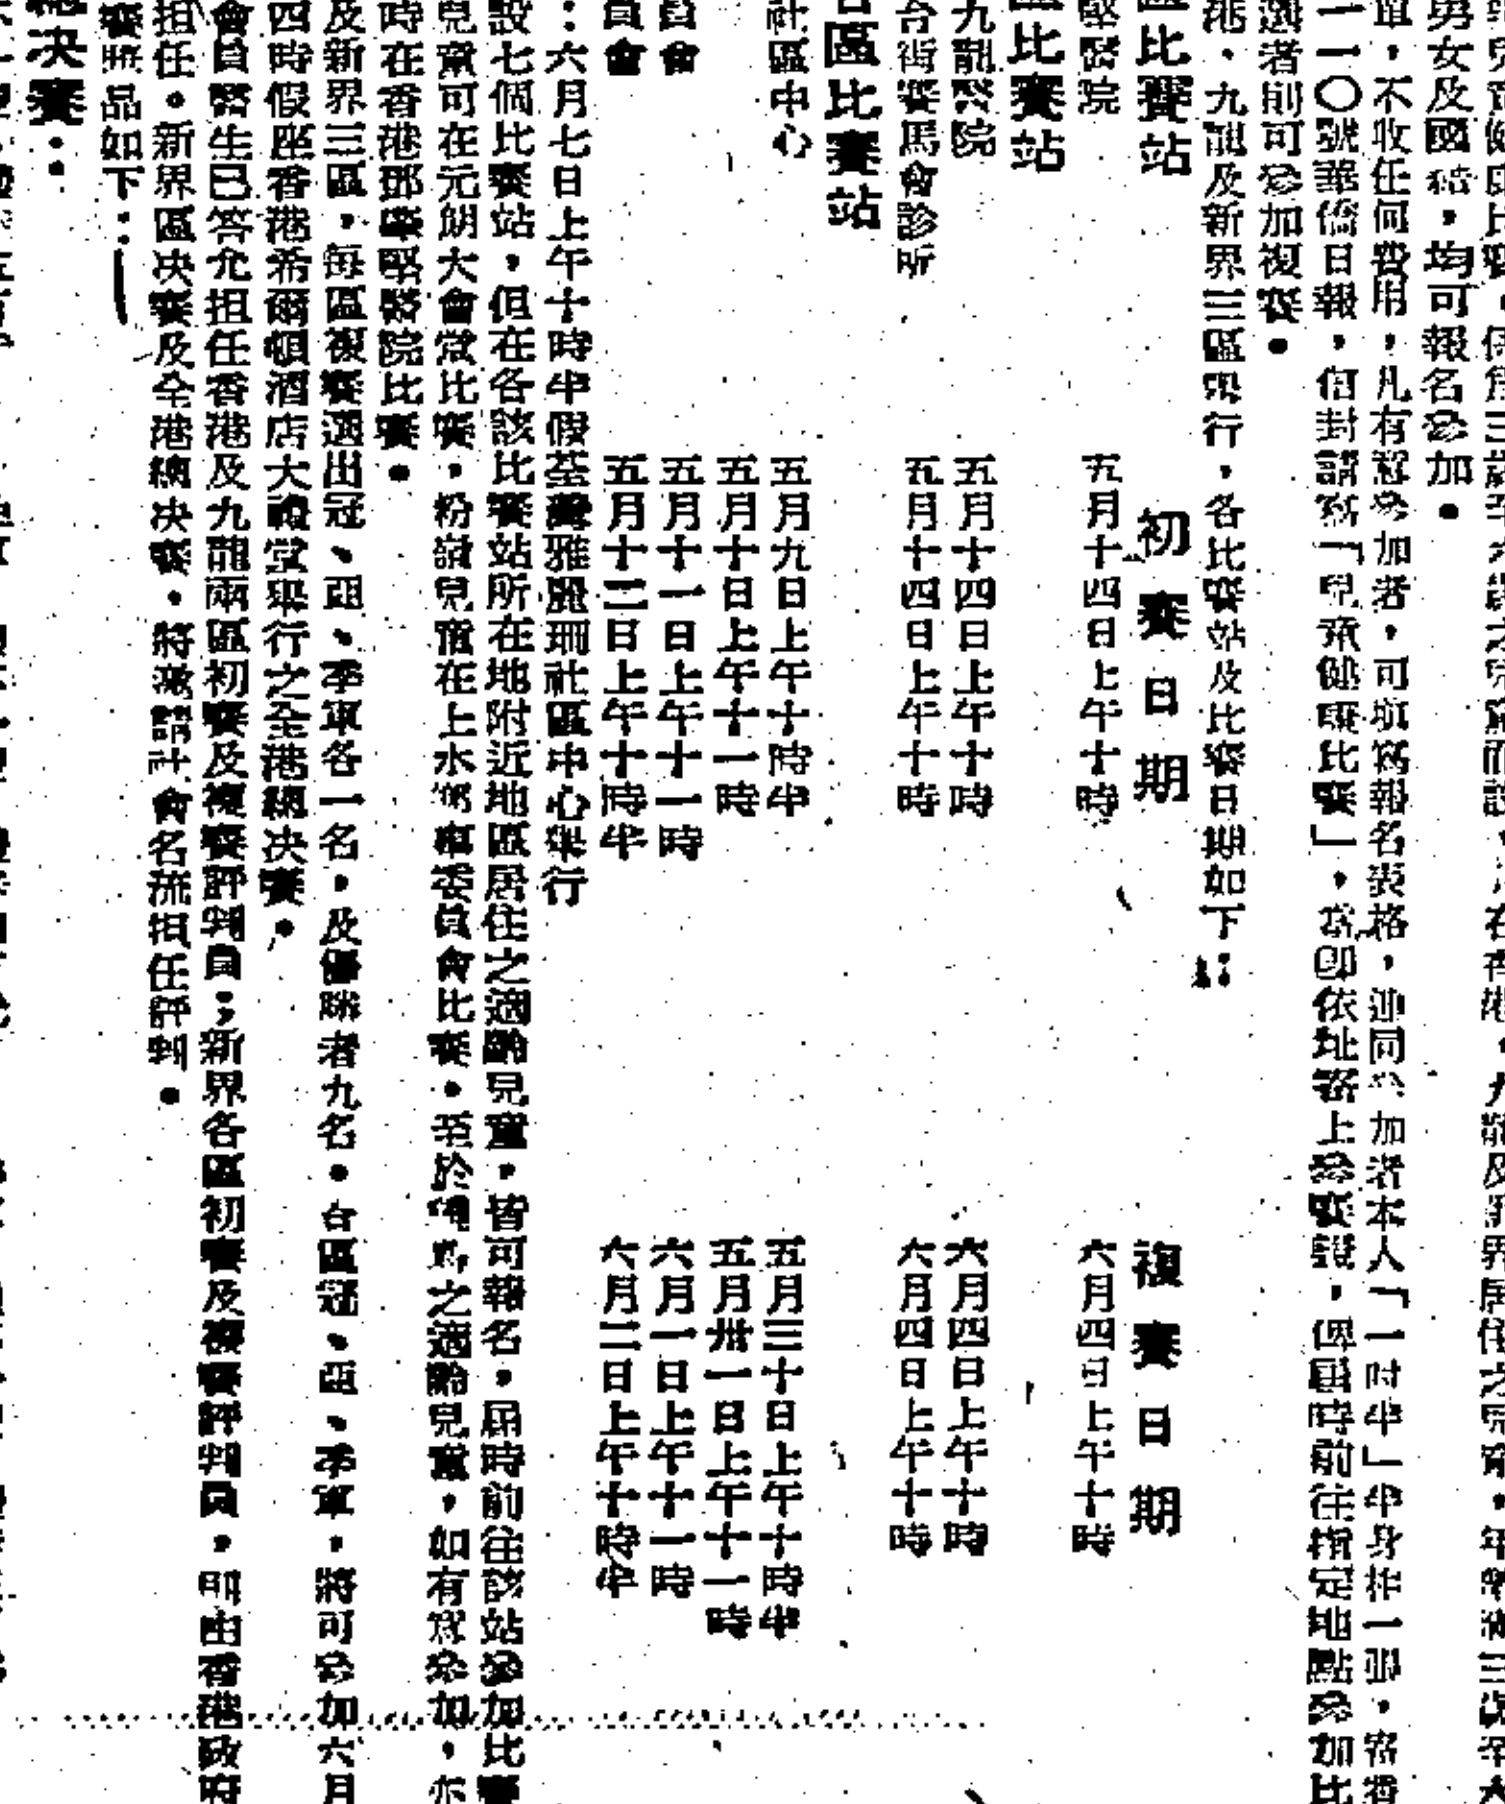 男女及國籍，均可報名參加。
單，不收任何費用，凡有意參加者，可填寫報名表格，連同參加者本人「一吋半」半身相一張，寄香
一一〇號華僑日報，信封請寫「兒童健康比賽」，當即依址寄上參賽證，俾屆時前往指定地點參加比
選者則可參加複賽。
港、九龍及新界三區舉行，各比賽站及比賽日期如下：
區比賽站　初賽日期　複賽日期
堅醫院　五月十四日上午十時　六月四日上午十時
區比賽站
九龍醫院　五月十四日上午十時　六月四日上午十時
台街賽馬會診所　五月十四日上午十時　六月四日上午十時
各區比賽站
社區中心　五月九日上午十時半　五月三十日上午十時半
五月十日上午十一時　五月卅一日上午十一時
員會　五月十一日上午十一時　六月一日上午十一時
員會　五月十二日上午十時半　六月二日上午十時半
：六月七日上午十時半假荃灣雅麗珊社區中心舉行
設七個比賽站，但在各該比賽站所在地附近地區居住之適齡兒童，皆可報名，屆時前往該站參加比賽
兒童可在元朗大會堂比賽，粉嶺兒童在上水鄉事委員會比賽。至於之適齡兒童，如有意參加，亦
時在香港鄧肇堅醫院比賽。
及新界三區，每區複賽選出冠、亞、季軍各一名，及優勝者九名。各區冠、亞、季軍，將可參加六月
四時假座香港希爾頓酒店大禮堂舉行之全港總決賽。
會員醫生已答允担任香港及九龍兩區初賽及複賽評判員；新界各區初賽及複賽評判員，則由香港政府
担任。新界區決賽及全港總決賽，將邀請社會名流担任評判。
賽獎品如下：—
總決賽：